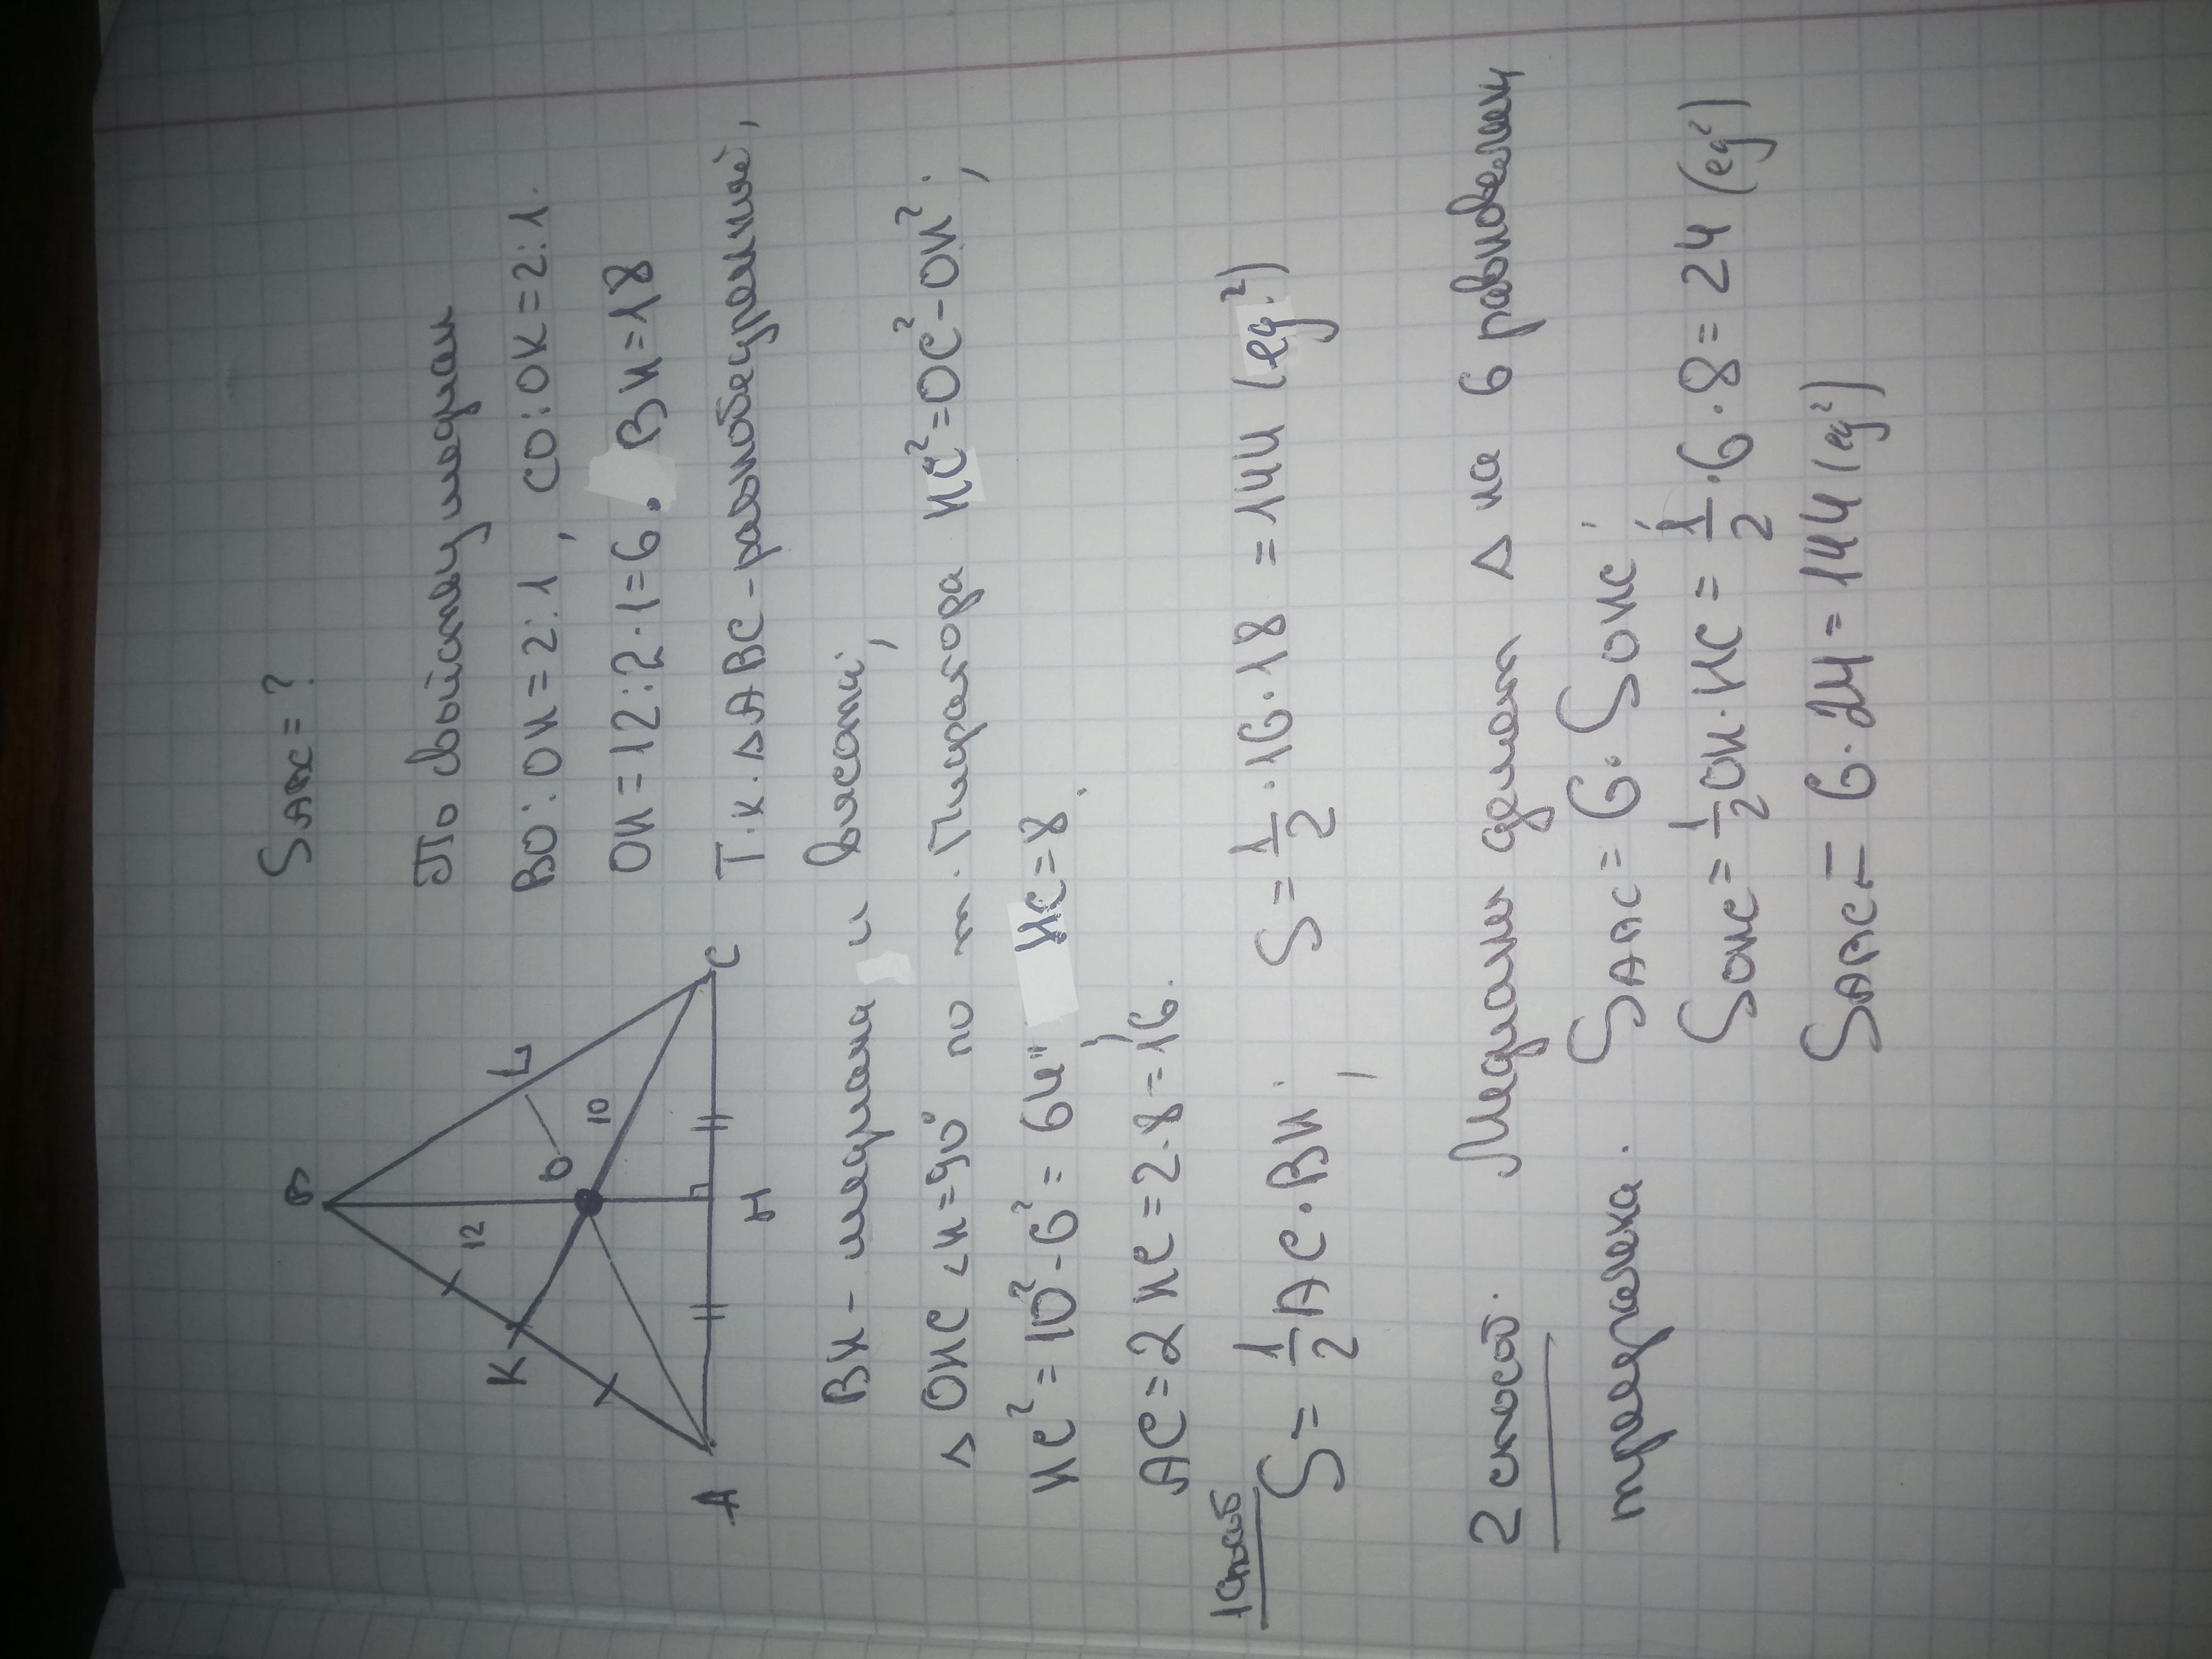 S_ABC = ?
B
12
K
O
L
10
A
H
C
По свойству медиан
BO : OH = 2 : 1, CO : OK = 2 : 1.
OH = 12 : 2 · 1 = 6. BH = 18
Т.к. △ABC - равнобедренный,
BH - медиана и высота;
△OHC ∠H = 90° по т. Пифагора HC² = OC² - OH²;
HC² = 10² - 6² = 64; HC = 8.
AC = 2HC = 2 · 8 = 16.
1 способ
S = 1/2 AC · BH; S = 1/2 · 16 · 18 = 144 (ед²)
2 способ. Медианы делят △ на 6 равновелик
треугольника. S_ABC = 6 · S_OHC;
S_OHC = 1/2 OH · HC = 1/2 · 6 · 8 = 24 (ед²)
S_ABC = 6 · 24 = 144 (ед²)